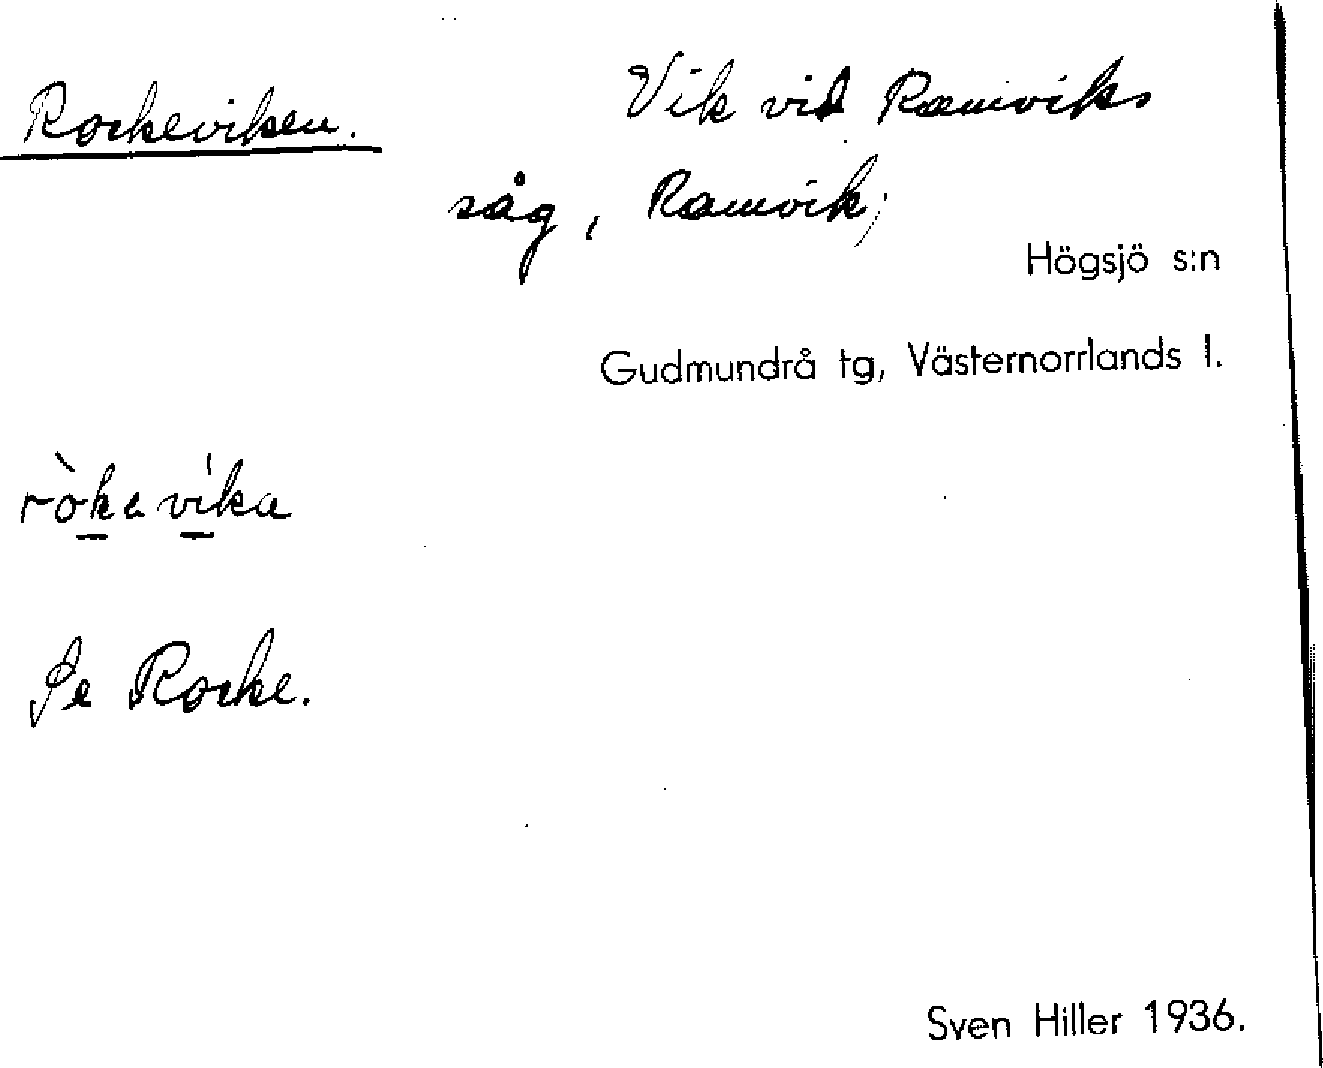 Rockeviken. Vik vid Ramviks
såg, Ramvik;
Högsjö s:n
Gudmundrå tg, Västernorrlands l.
ròkevi'ka
Se Rocke.
Sven Hiller 1936.